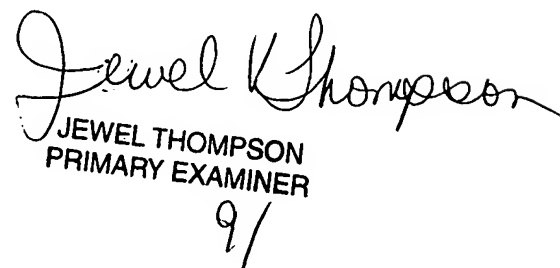 Jewel K Thompson
JEWEL THOMPSON
PRIMARY EXAMINER
9/